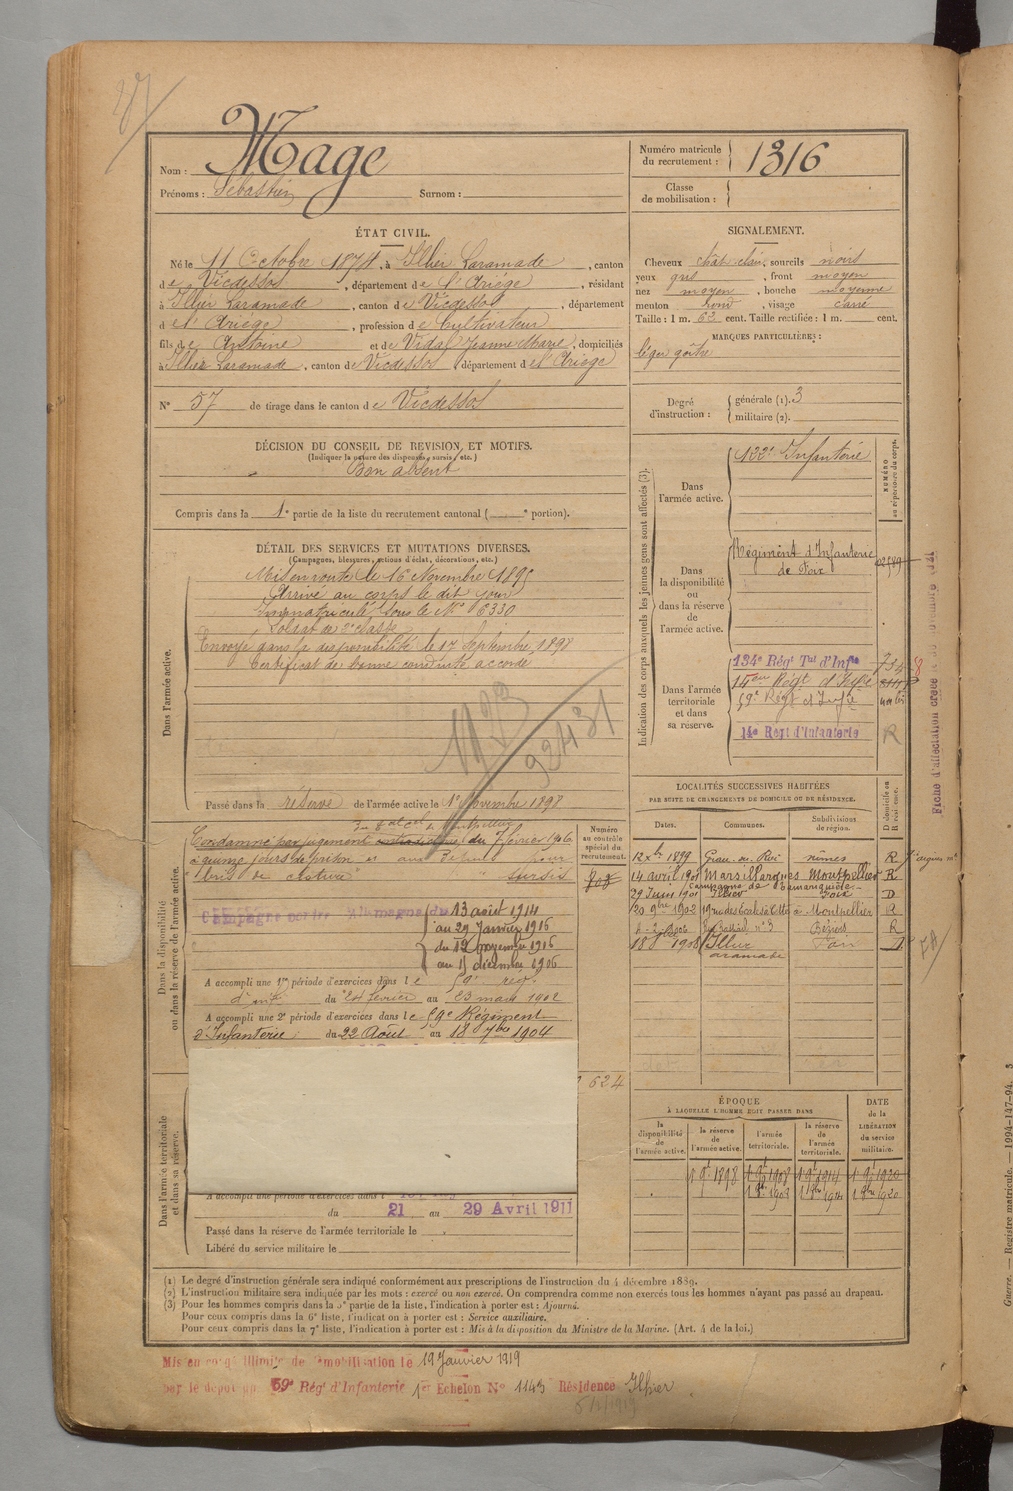 Nom : Mage
Prénoms : Sébastien Surnom :
Numéro matricule du recrutement : 1316
Classe de mobilisation :
ÉTAT CIVIL.
Né le 11 Octobre 1874, à Illier Laramade, canton
de Vicdessos, département de l'Ariège, résidant
à Illier Laramade, canton de Vicdessos, département
de l'Ariège, profession de Cultivateur
fils de Antoine et de Vidal Jeanne Marie, domiciliés
à Illier Laramade, canton de Vicdessos, département de l'Ariège
N° 57 de tirage dans le canton de Vicdessos
SIGNALEMENT.
Cheveux chât. clair, sourcils noirs
yeux gris, front moyen
nez moyen, bouche moyenne
menton rond, visage carré
Taille : 1 m. 62 cent. Taille rectifiée : 1 m. cent.
MARQUES PARTICULIÈRES :
léger goître
Degré d'instruction : générale (1). 3
militaire (2).
DÉCISION DU CONSEIL DE REVISION ET MOTIFS.
(Indiquer la nature des dispenses, sursis, etc.)
Bon absent
Compris dans la 1e partie de la liste du recrutement cantonal ( e portion).
DÉTAIL DES SERVICES ET MUTATIONS DIVERSES.
(Campagnes, blessures, actions d'éclat, décorations, etc.)
Dans l'armée active.
Mis en route le 16 Novembre 1895
Arrivé au corps le dit jour
Immatriculé sous le N° 6330
Soldat de 2e classe
Envoyé dans la disponibilité le 17 Septembre 1898
Certificat de bonne conduite accordé
1123
92431
Passé dans la réserve de l'armée active le 1er Novembre 1898
Indication des corps auxquels les jeunes gens sont affectés (3).
NUMÉRO au répertoire du corps.
Dans l'armée active.
122e Infanterie
Dans la disponibilité ou dans la réserve de l'armée active.
Régiment d'Infanterie
de Foix
Dans l'armée territoriale et dans sa réserve.
134e Régt Tal d'Infie
14eme Régt d'Infie
59e Régt d'Infie
14e Régt d'Infanterie
R
Fiche d'affectation créée
Dans la disponibilité ou dans la réserve de l'armée active.
Numéro au contrôle spécial du recrutement.
Condamné par jugement du 7 février 1906
à quinze jours de prison
bris de clôture sursis
Campagne contre l'Allemagne du 13 août 1914
au 29 Janvier 1916
du 12 novembre 1916
A accompli une 1re période d'exercices dans le 59e rég.
d'inf. du 24 février au 23 mars 1902
A accompli une 2e période d'exercices dans le 59e Régiment
d'Infanterie du 22 Août au 18 7bre 1904
624
LOCALITÉS SUCCESSIVES HABITÉES
PAR SUITE DE CHANGEMENTS DE DOMICILE OU DE RÉSIDENCE.
Dates. Communes. Subdivisions de région. D domicile ou R résidence.
12 xbre 1899 Grau-du-Roi Nîmes R
14 avril 1901 Marsillargues Montpellier R
29 Juin 1901 Illier Foix D
20 9bre 1902 à Montpellier R
Béziers R
1908 Illier Laramade Foix D
Dans l'armée territoriale et dans sa réserve.
A accompli une période d'exercices dans l
du 21 au 29 Avril 1911
Passé dans la réserve de l'armée territoriale le
Libéré du service militaire le
ÉPOQUE
À LAQUELLE L'HOMME DOIT PASSER DANS
DATE de la LIBÉRATION du service militaire.
la disponibilité de l'armée active.
la réserve de l'armée active.
l'armée territoriale.
la réserve de l'armée territoriale.
1 9bre 1898 1 9bre 1908 1 9bre 1914 1 9bre 1920
(1) Le degré d'instruction générale sera indiqué conformément aux prescriptions de l'instruction du 4 décembre 1889.
(2) L'instruction militaire sera indiquée par les mots : exercé ou non exercé. On comprendra comme non exercés tous les hommes n'ayant pas passé au drapeau.
(3) Pour les hommes compris dans la 5e partie de la liste, l'indication à porter est : Ajourné.
Pour ceux compris dans la 6e liste, l'indication à porter est : Service auxiliaire.
Pour ceux compris dans la 7e liste, l'indication à porter est : Mis à la disposition du Ministre de la Marine. (Art. 4 de la loi.)
Mis en congé illimité de démobilisation le 19 Janvier 1919
par le dépôt du 59e Régt d'Infanterie 1er Echelon N° 1143 Résidence Illier
Guerre. — Registre matricule. — 1994-147-94.